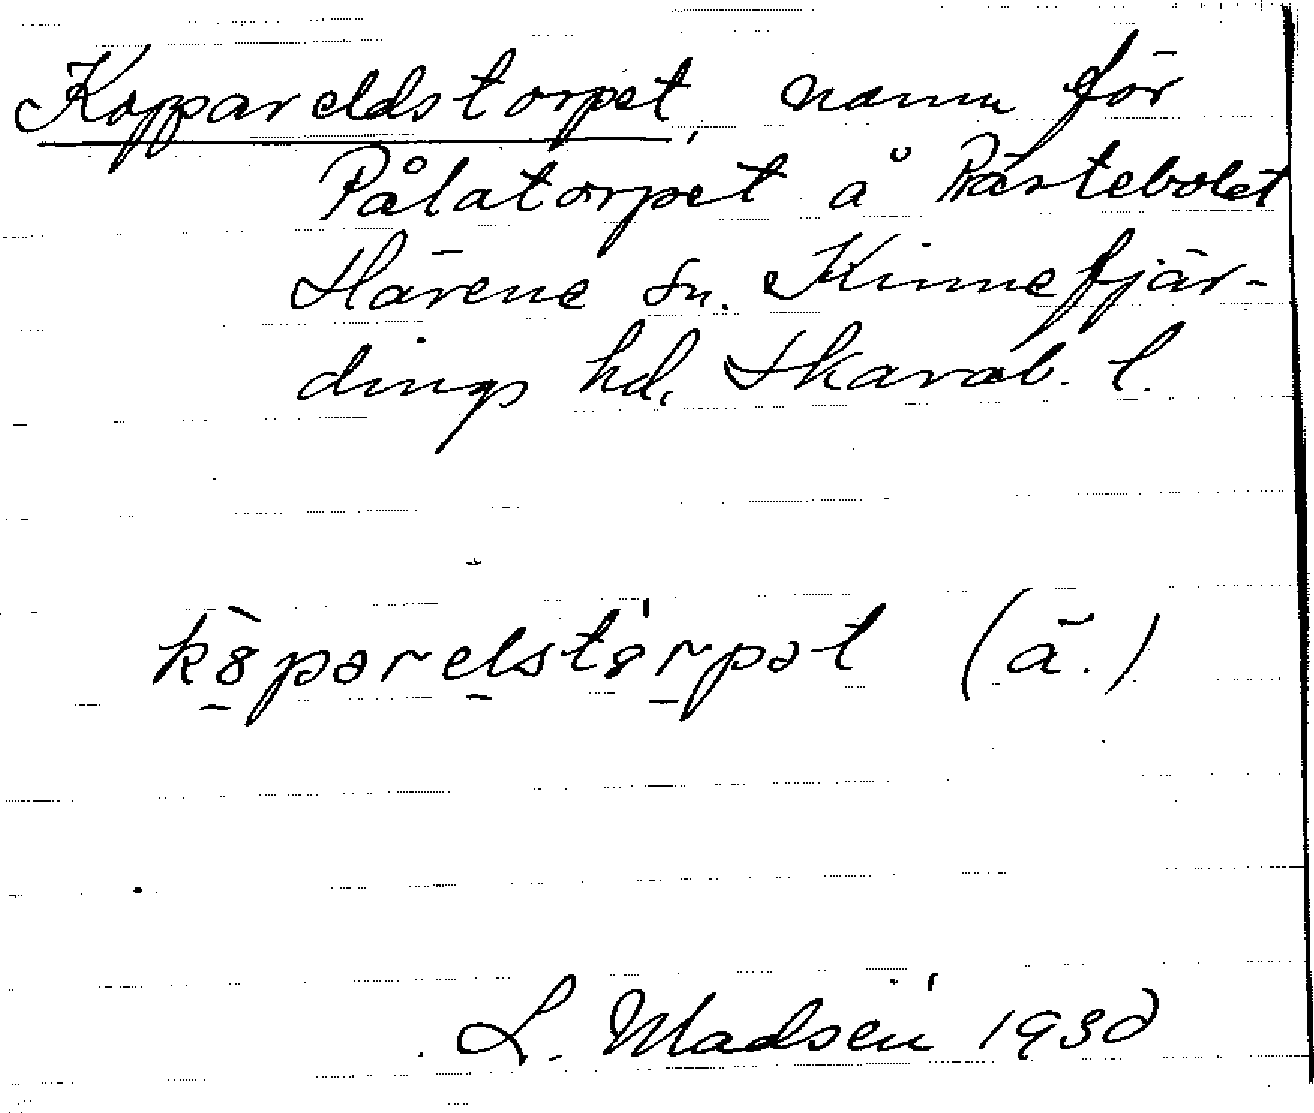 Koppareldstorpet, namn för
Pålatorpet å Prästebolet
Härene sn. Kinnefjär-
dings hd. Skarab. l.
kȯparelstȯrpət (ä.)
L. Madsén 1930